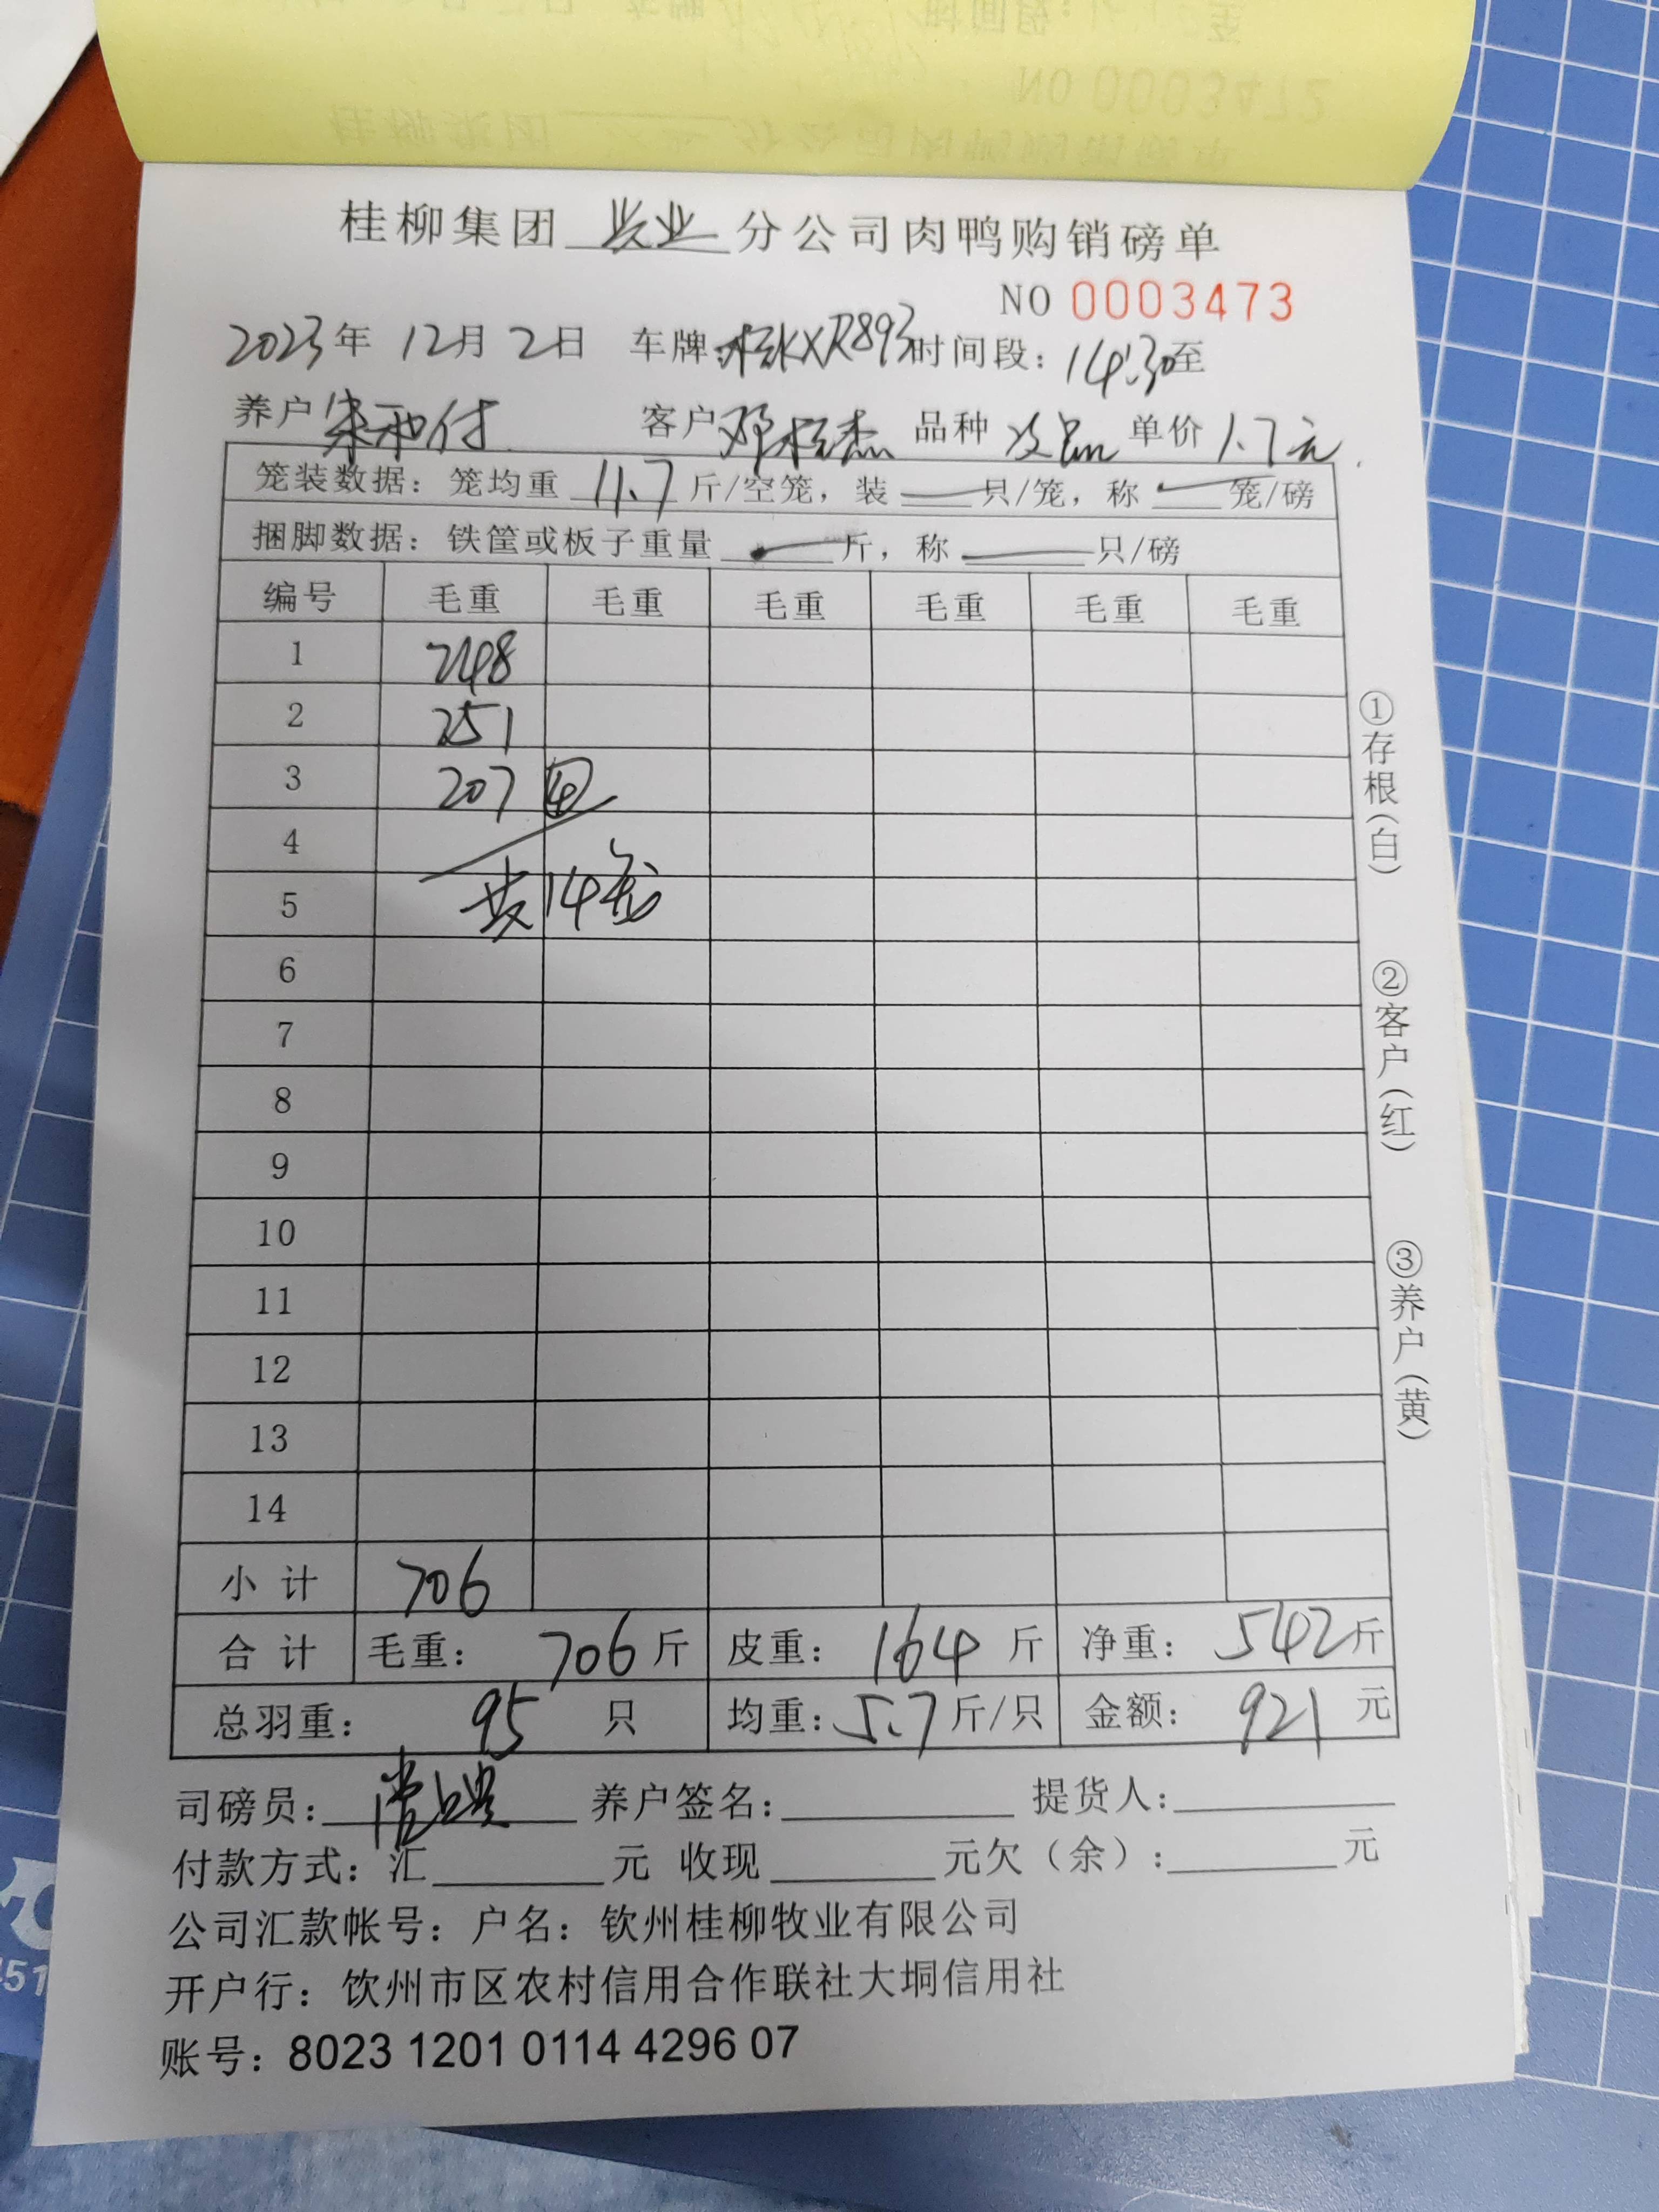 NO 0003472
桂柳集团 兴业 分公司肉鸭购销磅单
NO 0003473
2023年 12月 2日 车牌:桂KXR893 时间段: 14:30至
养户 客户 邓桂杰 品种 次品 单价 1.7元
笼装数据: 笼均重 11.7 斤/空笼, 装 — 只/笼, 称 — 笼/磅
捆脚数据: 铁筐或板子重量 — 斤, 称 — 只/磅
编号 毛重 毛重 毛重 毛重 毛重 毛重
1 248
2 251
3 207 ④
4
5 共14笼
6
7
8
9
10
11
12
13
14
小计 706
合计 毛重: 706 斤 皮重: 164 斤 净重: 542 斤
总羽重: 95 只 均重: 5.7 斤/只 金额: 921 元
司磅员: 养户签名: 提货人:
付款方式: 汇 元 收现 元欠(余): 元
公司汇款帐号: 户名: 钦州桂柳牧业有限公司
开户行: 钦州市区农村信用合作联社大垌信用社
账号: 8023 1201 0114 4296 07
①存根(白)
②客户(红)
③养户(黄)